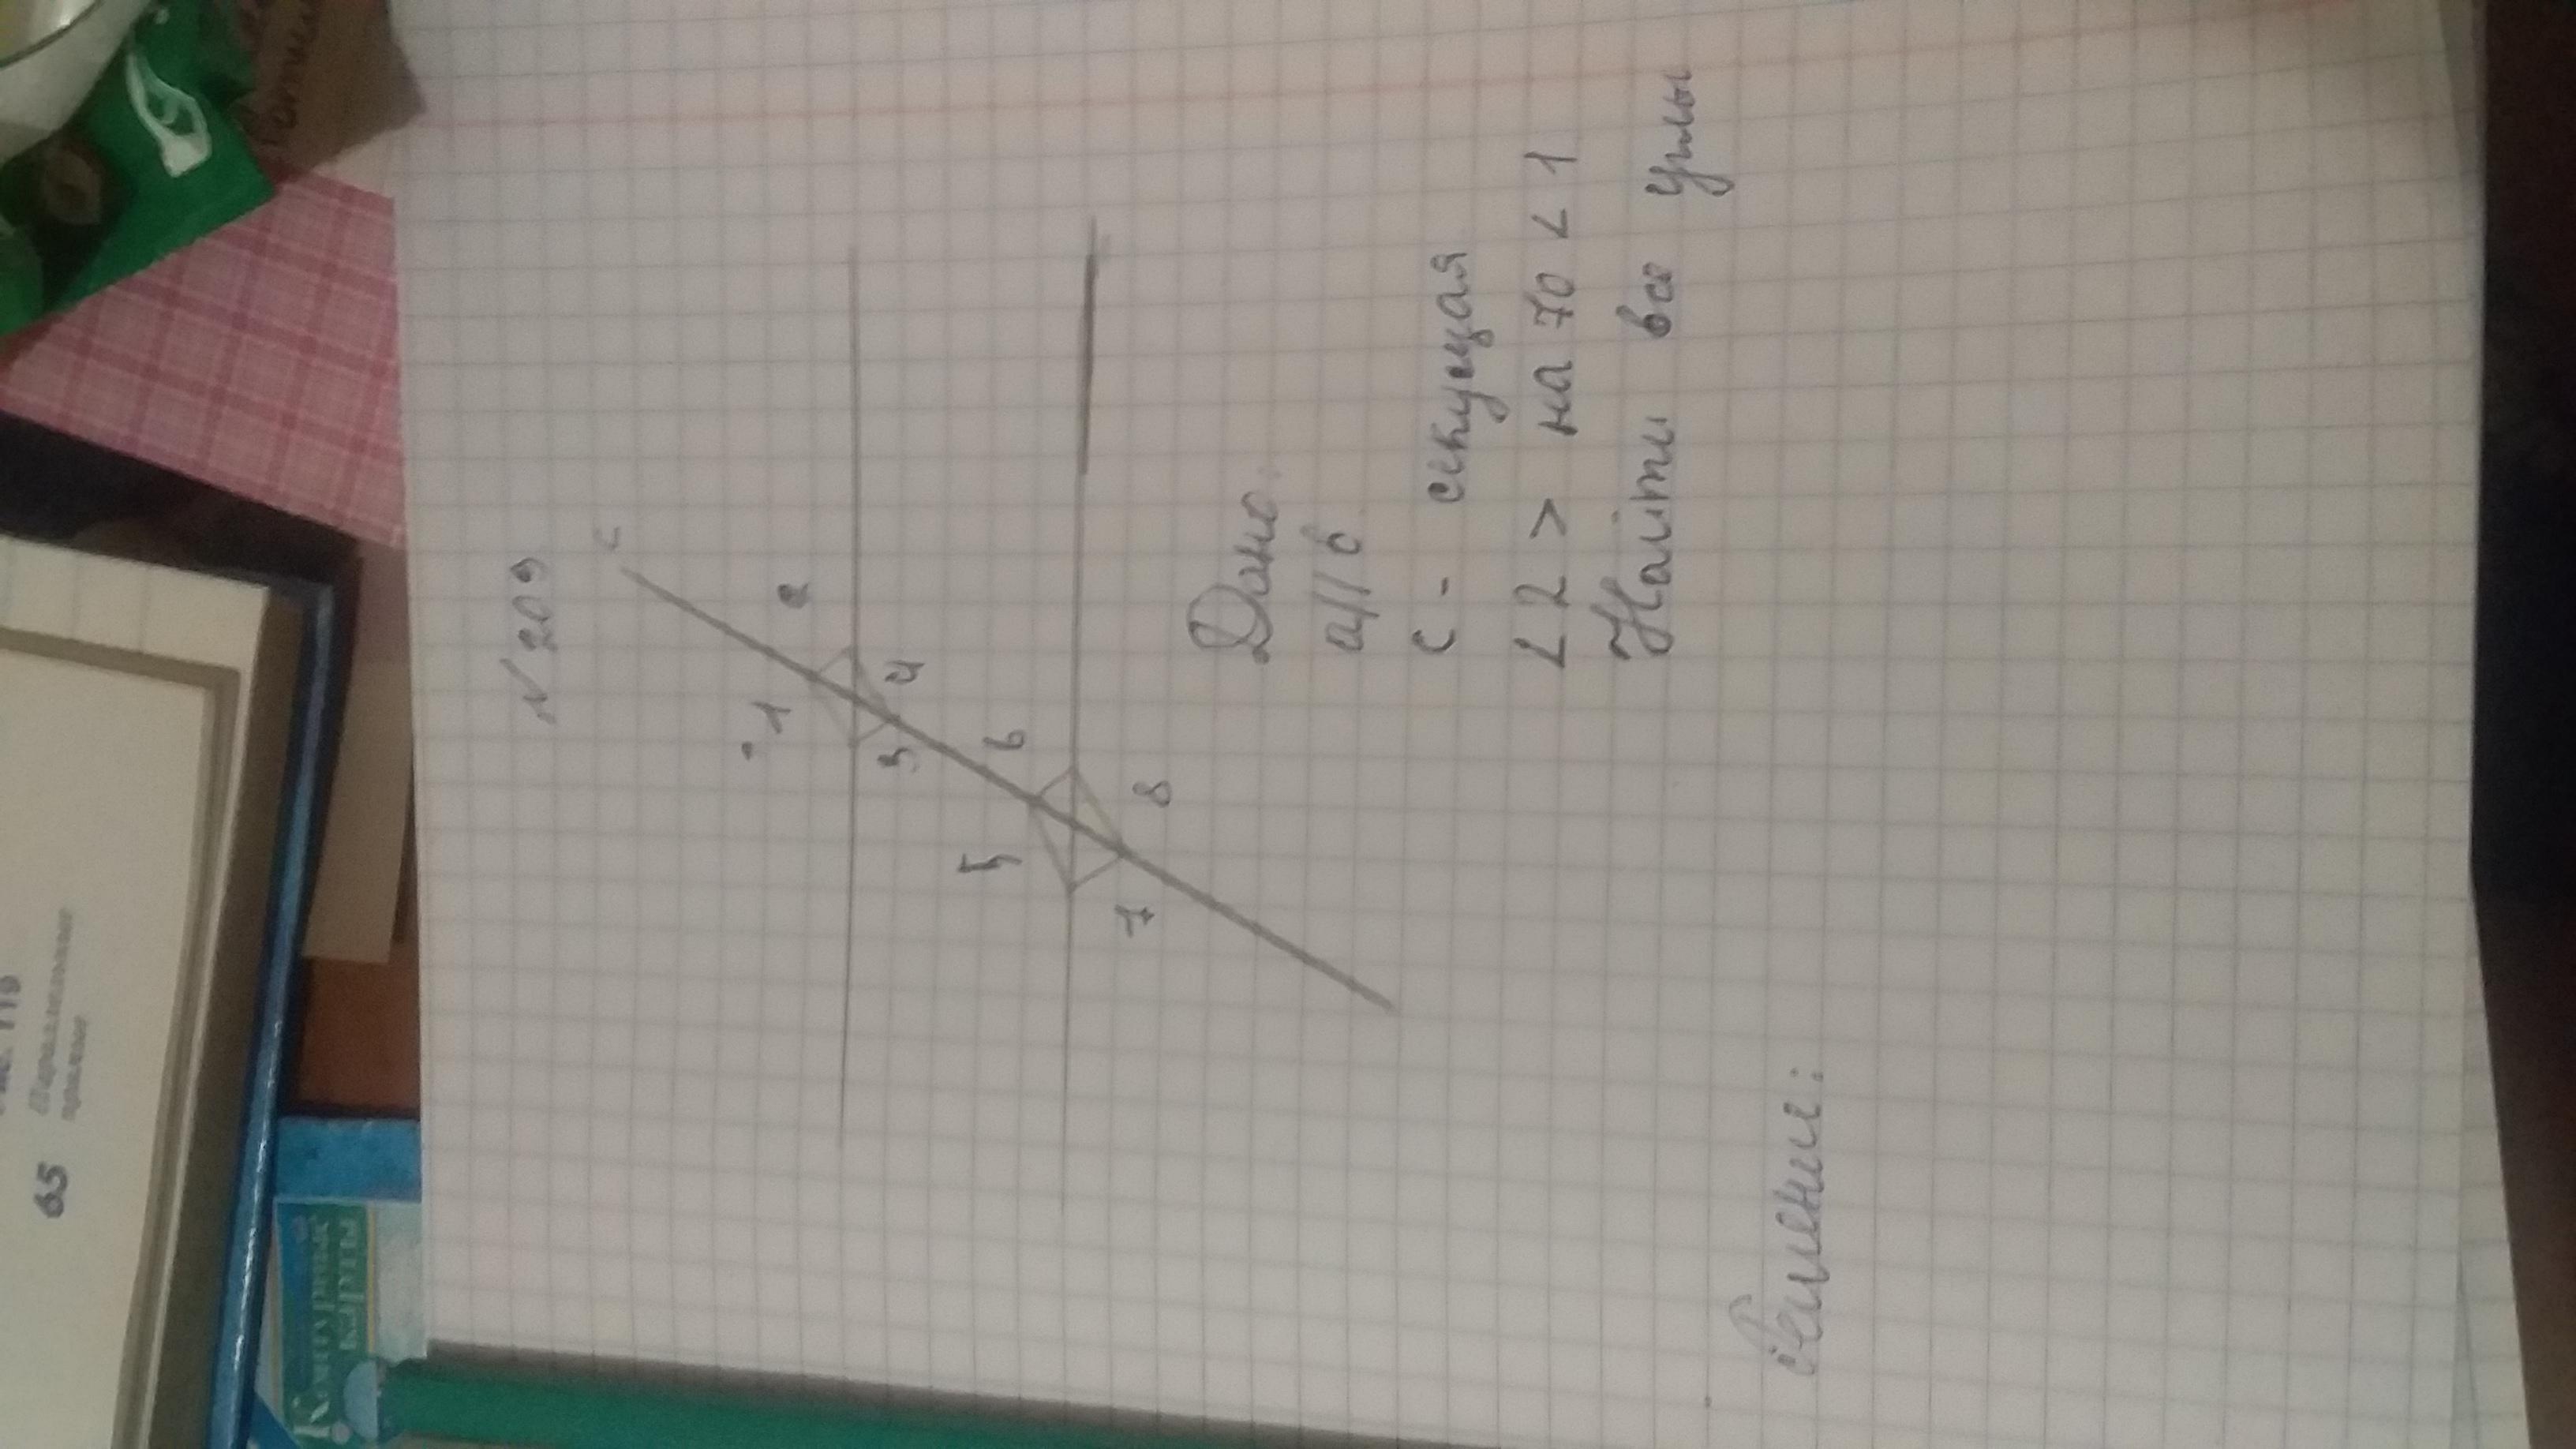 № 209
c
1 2
3 4
5 6
7 8
Дано:
a || b
c - секущая
∠2 > на 70 ∠1
Найти все углы
Решение:
65
Параллельные
прямые